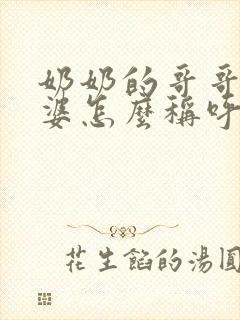 奶奶的哥哥
婆怎麼稱呼
花生餡的湯圓